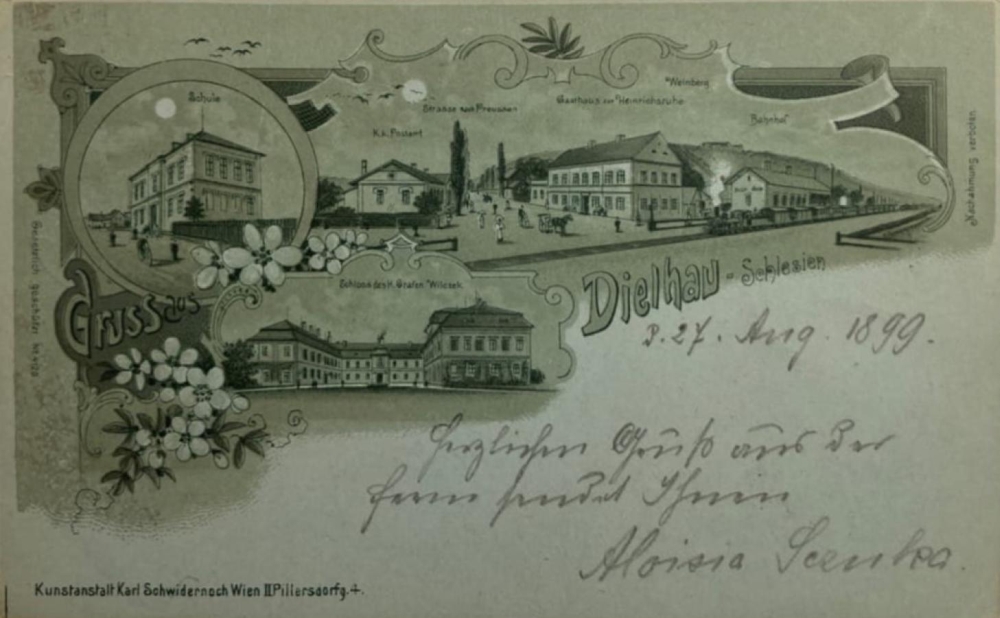 Schule
K.k. Postamt
Strasse nach Preussen
Gasthaus zur Heinrichsruhe
Weinberg
Bahnhof
Nachahmung verboten
Gesetzlich geschützt
Schloss des H. Grafen Wilczek
Gruss aus
Dielhau - Schlesien
d. 27. Aug. 1899.
Herzlichen Gruß aus der
Ferne sendet Ihnen
Aloisia
Kunstanstalt Karl Schwidernoch Wien II Pillersdorfg. 4.